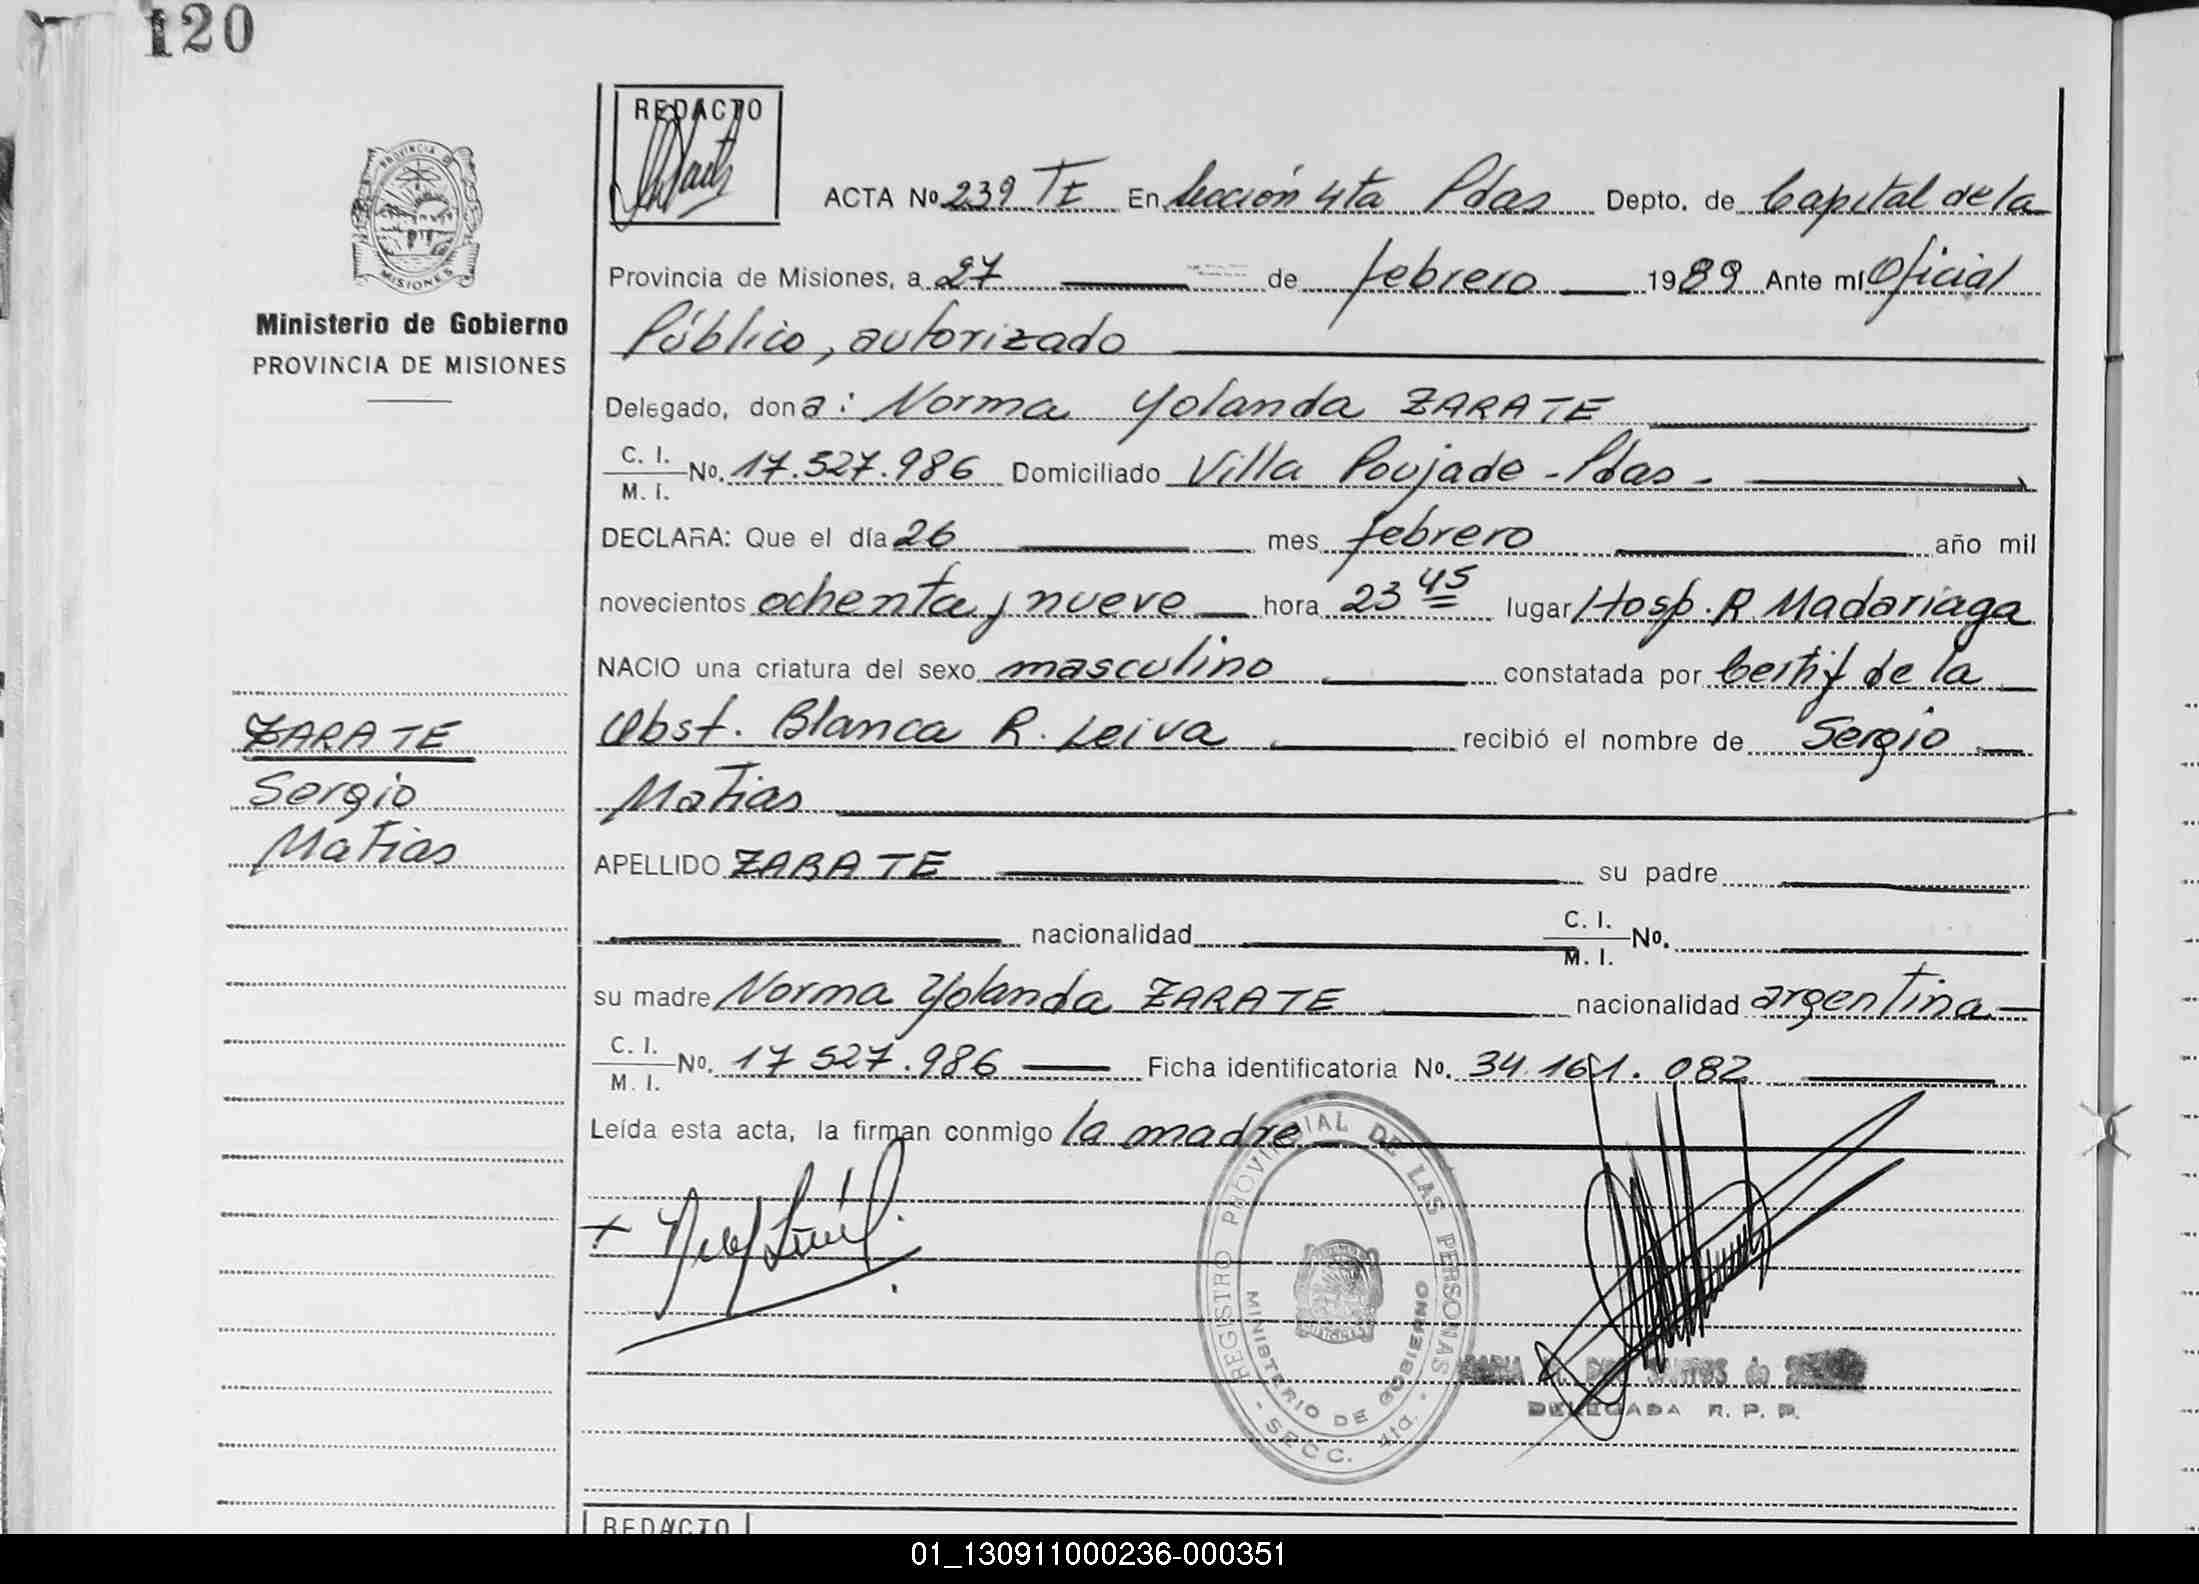 120
REDACTO
PROVINCIA DE
MISIONES
Ministerio de Gobierno
PROVINCIA DE MISIONES
ACTA No 239 TE En Sección 4ta Pdas Depto. de Capital de la
Provincia de Misiones, a 27 de febrero 1989 Ante mí Oficial
Público, autorizado
Delegado, dona: Norma Yolanda ZARATE
C. I.
M. I. No. 17.527.986 Domiciliado Villa Poujade - Pdas -
DECLARA: Que el día 26 mes febrero año mil
novecientos ochenta y nueve hora 23 45 lugar Hosp. R. Madariaga
NACIO una criatura del sexo masculino constatada por Certif de la
Obst. Blanca R. Leiva recibió el nombre de Sergio
Matias
APELLIDO ZARATE su padre
nacionalidad C. I.
M. I. No.
su madre Norma Yolanda ZARATE nacionalidad argentina
C. I.
M. I. No. 17 527.986 Ficha identificatoria No. 34.161.082
Leída esta acta, la firman conmigo la madre
ZARATE
Sergio
Matias
REGISTRO PROVINCIAL DE LAS PERSONAS
MINISTERIO DE GOBIERNO
- SECC. 4ta. -
DOS SANTOS de
DELEGADA R. P. P.
REDACTO
01_130911000236-000351